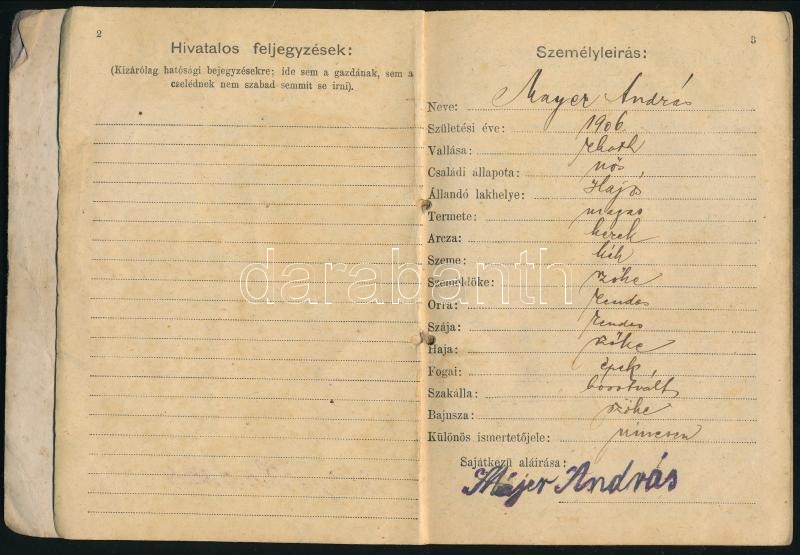 2
Hivatalos feljegyzések:
(Kizárólag hatósági bejegyzésekre; ide sem a gazdának, sem a
czelédnek nem szabad semmit se irni).
3
Személyleirás:
Neve: Mayer András
Születési éve: 1906
Vallása: rkath
Családi állapota: nős
Állandó lakhelye: Hajós
Termete: magas
Arcza: kerek
Szeme: kék
Szemöldöke: szőke
Orra: rendes
Szája: rendes
Haja: szőke
Fogai: épek
Szakálla: borotvált
Bajusza: szőke
Különös ismertetőjele: nincsen
Sajátkezü aláirása:
Májer András
darabanth